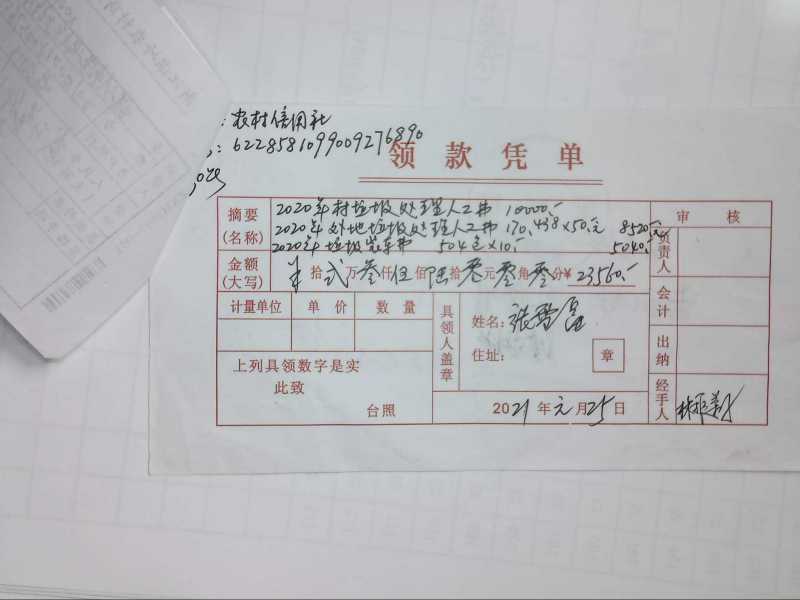 : 农村信用社
: 6228581099009276890
领款凭单
摘要
(名称)
2020年村垃圾处理人工费 10000.-
2020年外地垃圾处理人工费 170.438×50.元 8520.-
2020年垃圾装车费 504包×10.- 5040.-
审核
金额
(大写)
拾 弍 万 叁 仟 伍 佰 陆 拾 零 元 零 角 零 分 ¥ 23560.-
计量单位 单价 数量
上列具领数字是实
此致
台照
具领人盖章
姓名:
住址:
章
2021年元月25日
负责人
会计
出纳
经手人